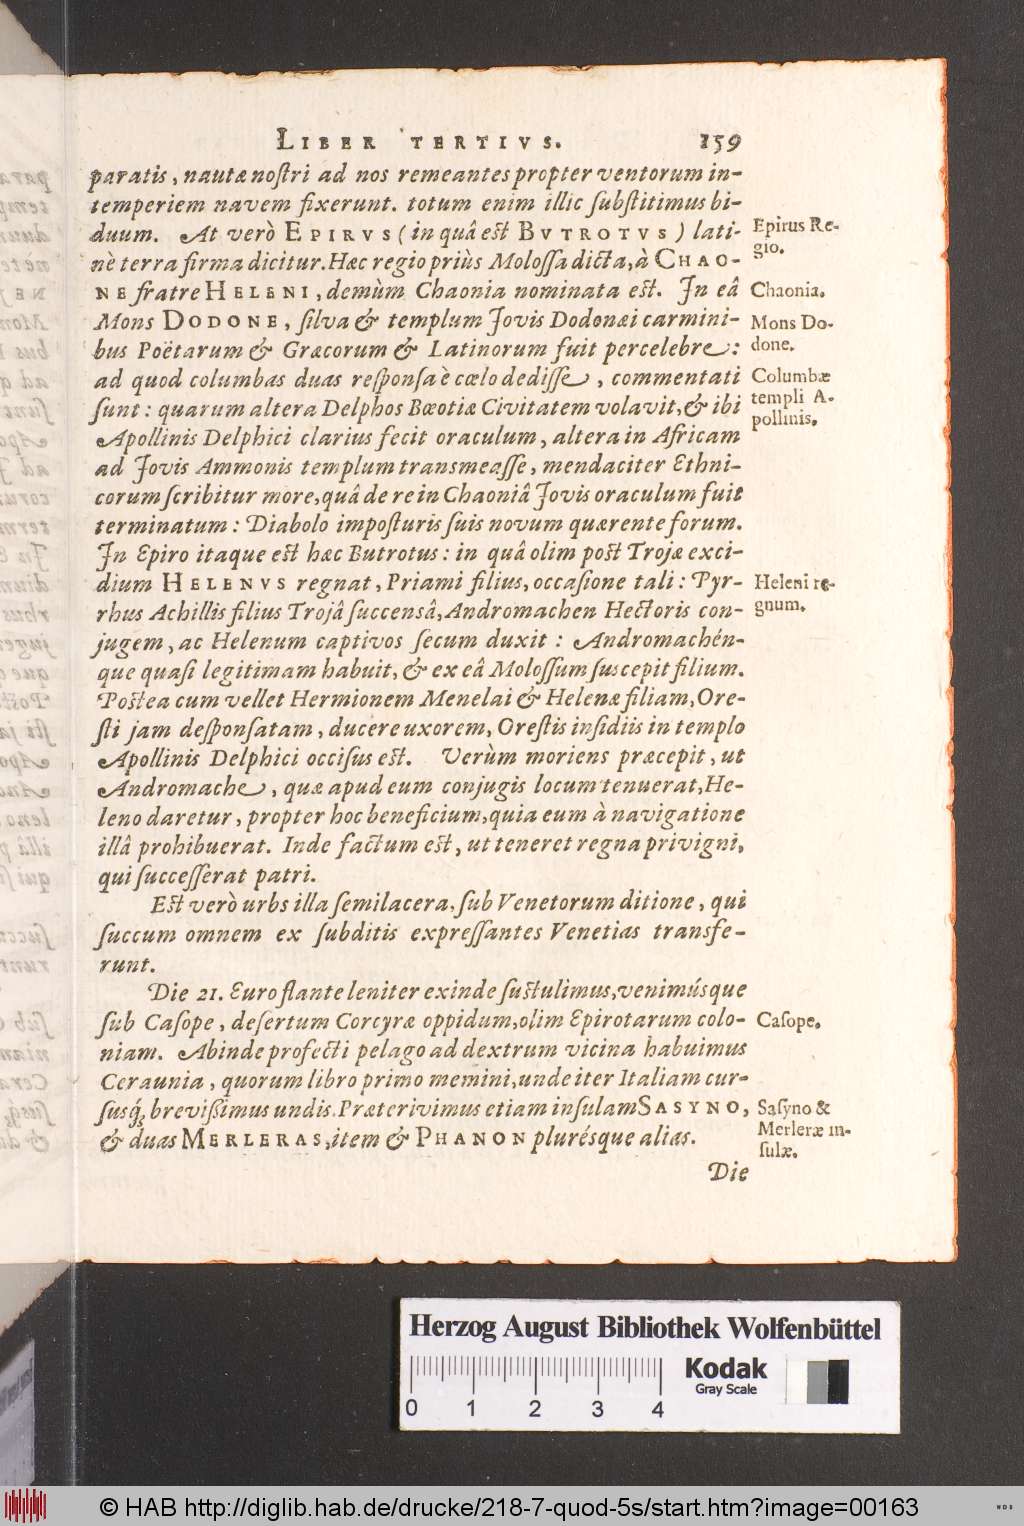 LIBER TERTIVS. 159
paratis, nautæ noſtri ad nos remeantes propter ventorum in-
temperiem navem fixerunt. totum enim illic ſubſtitimus bi-
duum. At verò EPIRVS (in quâ eſt BVTROTVS) lati-
nè terra firma dicitur. Hæc regio priùs Moloſſa dicta, à CHAO-
NE fratre HELENI, demùm Chaonia nominata eſt. In eâ
Mons DODONE, ſilva & templum Jovis Dodonæi carmini-
bus Poëtarum & Græcorum & Latinorum fuit percelebre:
ad quod columbas duas reſponſa è cœlo dediſſe, commentati
ſunt: quarum altera Delphos Bœotiæ Civitatem volavit, & ibi
Apollinis Delphici clarius fecit oraculum, altera in Africam
ad Jovis Ammonis templum transmeaſſe, mendaciter Ethni-
corum ſcribitur more, quâ de re in Chaoniâ Jovis oraculum fuit
terminatum: Diabolo impoſturis ſuis novum quærente forum.
In Epiro itaque eſt hæc Butrotus: in quâ olim poſt Trojæ exci-
dium HELENVS regnat, Priami filius, occaſione tali: Pyr-
rhus Achillis filius Trojâ ſuccensâ, Andromachen Hectoris con-
jugem, ac Helenum captivos ſecum duxit: Andromachén-
que quaſi legitimam habuit, & ex eâ Moloſſum ſuscepit filium.
Poſtea cum vellet Hermionem Menelai & Helenæ filiam, Ore-
ſti jam deſponſatam, ducere uxorem, Oreſtis inſidiis in templo
Apollinis Delphici occiſus eſt. Verùm moriens præcepit, ut
Andromache, quæ apud eum conjugis locum tenuerat, He-
leno daretur, propter hoc beneficium, quia eum à navigatione
illâ prohibuerat. Inde factum eſt, ut teneret regna privigni,
qui ſucceſſerat patri.
Eſt verò urbs illa ſemilacera, ſub Venetorum ditione, qui
ſuccum omnem ex ſubditis expreſſantes Venetias transfe-
runt.
Die 21. Euro flante leniter exinde ſuſtulimus, venimúsque
ſub Caſope, deſertum Corcyræ oppidum, olim Epirotarum colo-
niam. Abinde profecti pelago ad dextrum vicina habuimus
Ceraunia, quorum libro primo memini, unde iter Italiam cur-
ſusq́; breviſſimus undis. Præterivimus etiam inſulam SASYNO,
& duas MERLERAS, item & PHANON plurésque alias.
Die
Epirus Re-
gio.
Chaonia.
Mons Do-
done.
Columbæ
templi A-
pollinis.
Heleni re-
gnum.
Caſope.
Saſyno &
Merleræ in-
ſulæ.
Herzog August Bibliothek Wolfenbüttel
Kodak
Gray Scale
0 1 2 3 4
© HAB http://diglib.hab.de/drucke/218-7-quod-5s/start.htm?image=00163